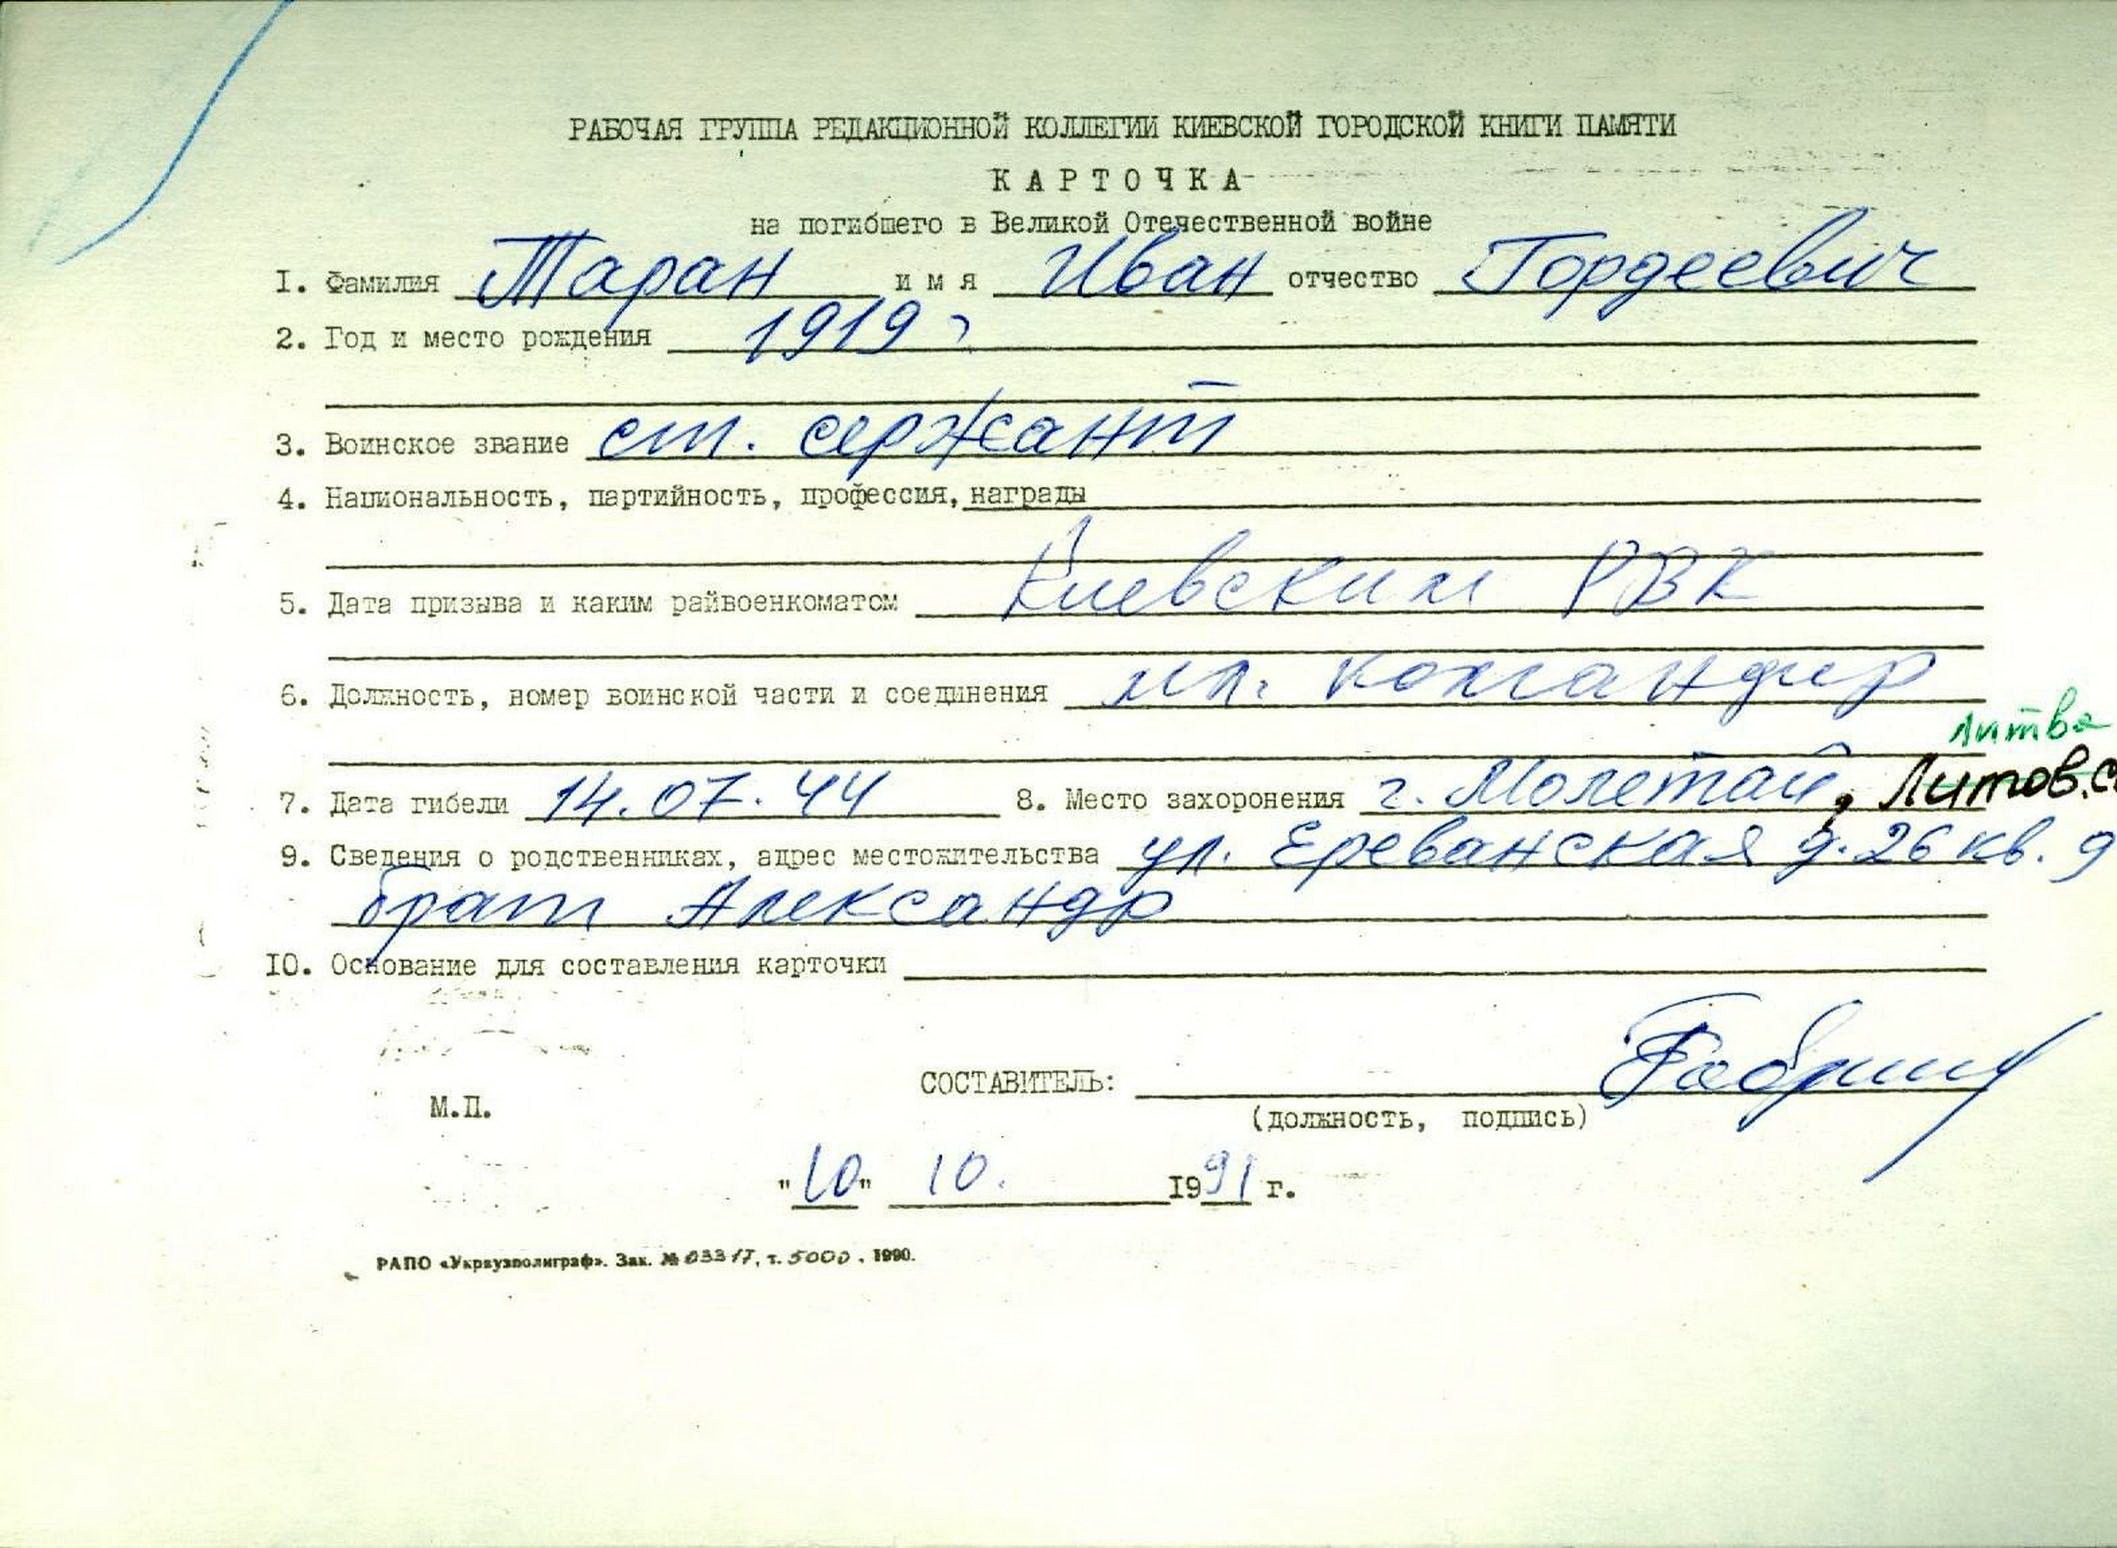 РАБОЧАЯ ГРУППА РЕДАКЦИОННОЙ КОЛЛЕГИИ КИЕВСКОЙ ГОРОДСКОЙ КНИГИ ПАМЯТИ
КАРТОЧКА
на погибшего в Великой Отечественной войне
1. Фамилия Таран имя Иван отчество Гордеевич
2. Год и место рождения 1919 г
3. Воинское звание ст. сержант
4. Национальность, партийность, профессия, награды
5. Дата призыва и каким райвоенкоматом Киевским РВК
6. Должность, номер воинской части и соединения мл. командир
Литва
7. Дата гибели 14.07.44 8. Место захоронения г. Молетай, Литов.
9. Сведения о родственниках, адрес местожительства ул. Ереванская д. 26 кв. 9
брат Александр
10. Основание для составления карточки
СОСТАВИТЕЛЬ:
М.П.
(должность, подпись)
"10" 10. 1991 г.
РАПО «Укрвузполиграф». Зак. № 03317, т. 5000. 1990.